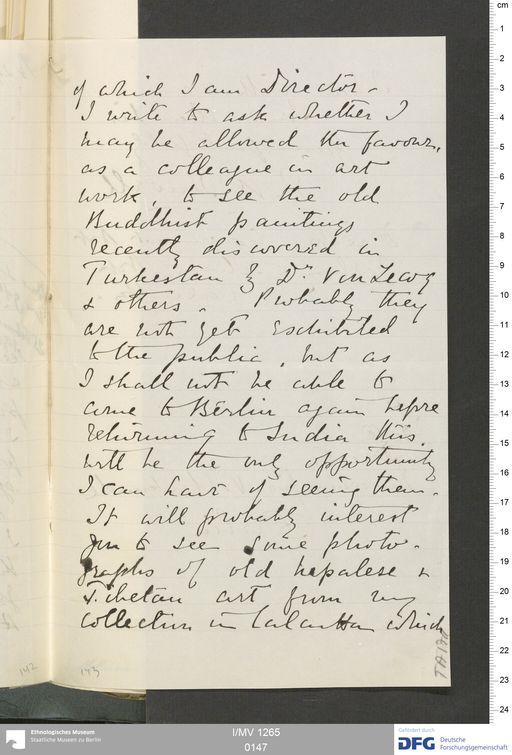 of which I am Director -
I write to ask whether I
may be allowed the favour,
as a colleague in art
work, to see the old
Buddhist paintings
recently discovered in
Turkestan by Dr. Von Lecoq
& others. Probably they
are not yet exhibited
to the public, but as
I shall not be able to
come to Berlin again before
returning to India this
will be the only opportunity
I can have of seeing them.
It will probably interest
you to see some photo-
graphs of old Nepalese &
Tibetan art from my
collection in Calcutta which
142 143
cm
1
2
3
4
5
6
7
8
9
10
11
12
13
14
15
16
17
18
19
20
21
22
23
24
Ethnologisches Museum
Staatliche Museen zu Berlin
I/MV 1265
0147
Gefördert durch
DFG Deutsche
Forschungsgemeinschaft